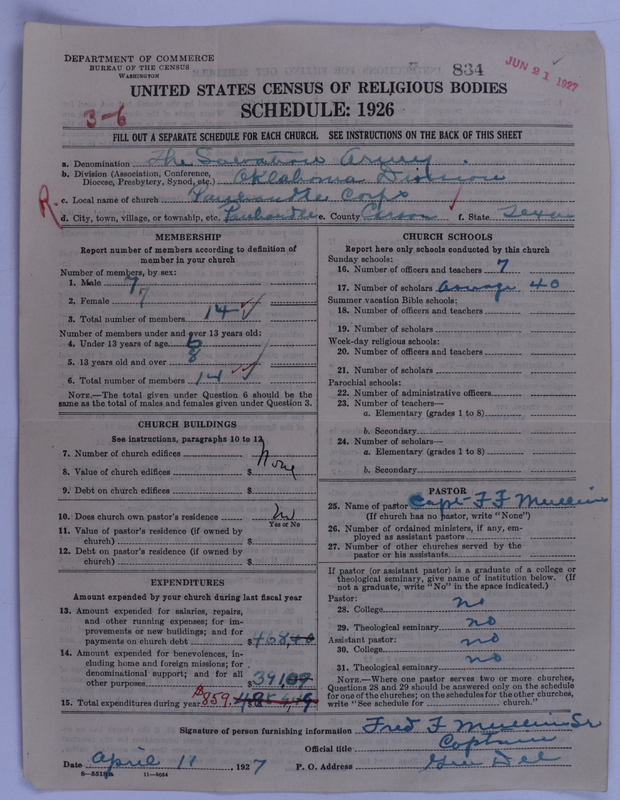 DEPARTMENT OF COMMERCE
BUREAU OF THE CENSUS
WASHINGTON
834
JUN 21 1927
UNITED STATES CENSUS OF RELIGIOUS BODIES
SCHEDULE: 1926
3-6
FILL OUT A SEPARATE SCHEDULE FOR EACH CHURCH. SEE INSTRUCTIONS ON THE BACK OF THIS SHEET
a. Denomination The Salvation Army
b. Division (Association, Conference,
Diocese, Presbytery, Synod, etc.) Oklahoma Division
R.
c. Local name of church Panhandle Corps
d. City, town, village, or township, etc. Panhandle e. County Carson f. State Texas
MEMBERSHIP
Report number of members according to definition of
member in your church
Number of members, by sex:
1. Male 7
2. Female 7
3. Total number of members 14
Number of members under and over 13 years old:
4. Under 13 years of age 6
5. 13 years old and over 8
6. Total number of members 14
NOTE.—The total given under Question 6 should be
same as the total of males and females given under Question 3.
CHURCH BUILDINGS
See instructions, paragraphs 10 to 12
7. Number of church edifices
None
8. Value of church edifices $
9. Debt on church edifices $
10. Does church own pastor's residence No
Yes or No
11. Value of pastor's residence (if owned by
church) $
12. Debt on pastor's residence (if owned by
church) $
EXPENDITURES
Amount expended by your church during last fiscal year
13. Amount expended for salaries, repairs,
and other running expenses; for im-
provements or new buildings; and for
payments on church debt $ 468
14. Amount expended for benevolences, in-
cluding home and foreign missions; for
denominational support; and for all
other purposes $ 391
15. Total expenditures during year $859.
CHURCH SCHOOLS
Report here only schools conducted by this church
Sunday schools:
16. Number of officers and teachers 7
17. Number of scholars average 40
Summer vacation Bible schools:
18. Number of officers and teachers
19. Number of scholars
Week-day religious schools:
20. Number of officers and teachers
21. Number of scholars
Parochial schools:
22. Number of administrative officers
23. Number of teachers—
a. Elementary (grades 1 to 8)
b. Secondary
24. Number of scholars—
a. Elementary (grades 1 to 8)
b. Secondary
PASTOR
25. Name of pastor Capt- F F Mullins
(If church has no pastor, write "None")
26. Number of ordained ministers, if any, em-
ployed as assistant pastors
27. Number of other churches served by the
pastor or his assistants
If pastor (or assistant pastor) is a graduate of a college or
theological seminary, give name of institution below. (If
not a graduate, write "No" in the space indicated.)
Pastor:
28. College no
29. Theological seminary no
Assistant pastor:
30. College no
31. Theological seminary no
NOTE.—Where one pastor serves two or more churches,
Questions 28 and 29 should be answered only on the schedule
for one of the churches; on the schedules for the other churches,
write "See schedule for church."
Signature of person furnishing information Fred F Mullins Sr
Official title Captain
Date April 11, 1927 P. O. Address Gen Del
8—5518a 11—9054